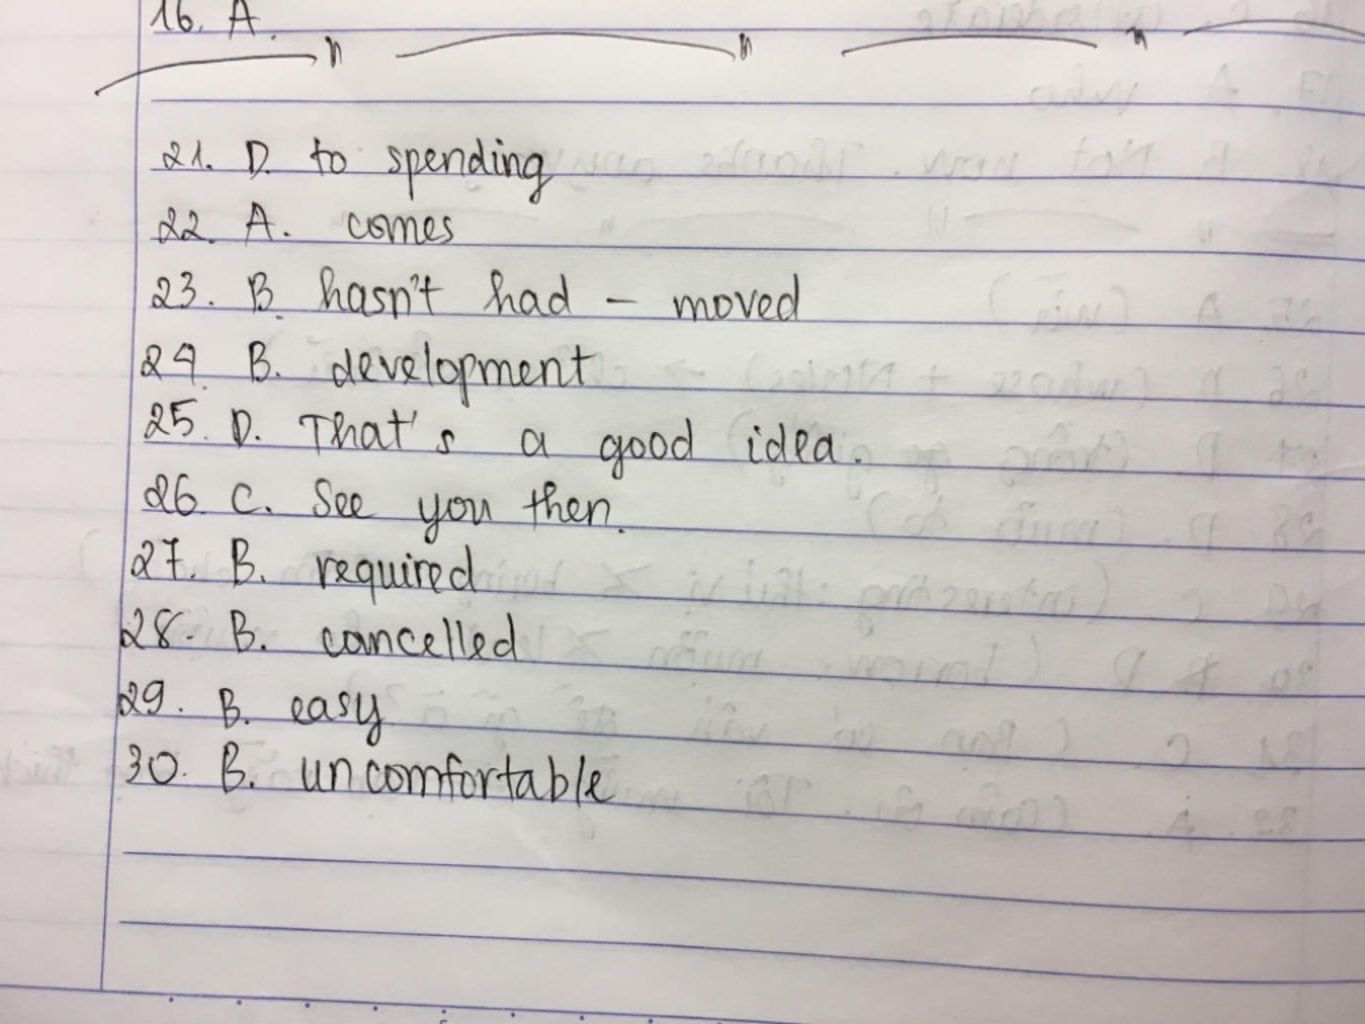 16. A.
21. D. to spending
22. A. comes
23. B. hasn't had - moved
24. B. development
25. D. That's a good idea.
26 C. See you then.
27. B. required
28. B. cancelled
29. B. easy
30. B. uncomfortable